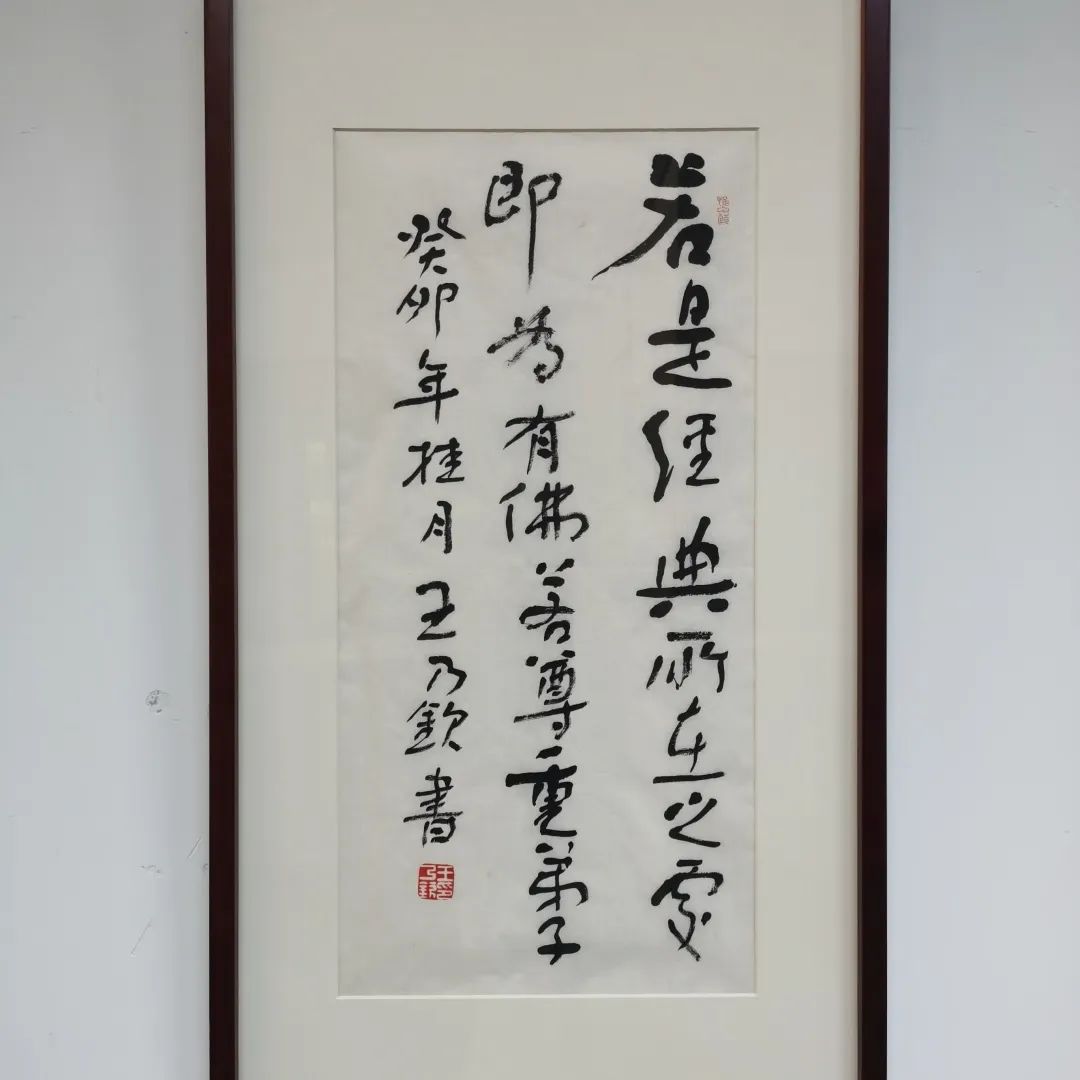 若是經典所在之處
即為有佛若尊重弟子
癸卯年桂月王乃欽書